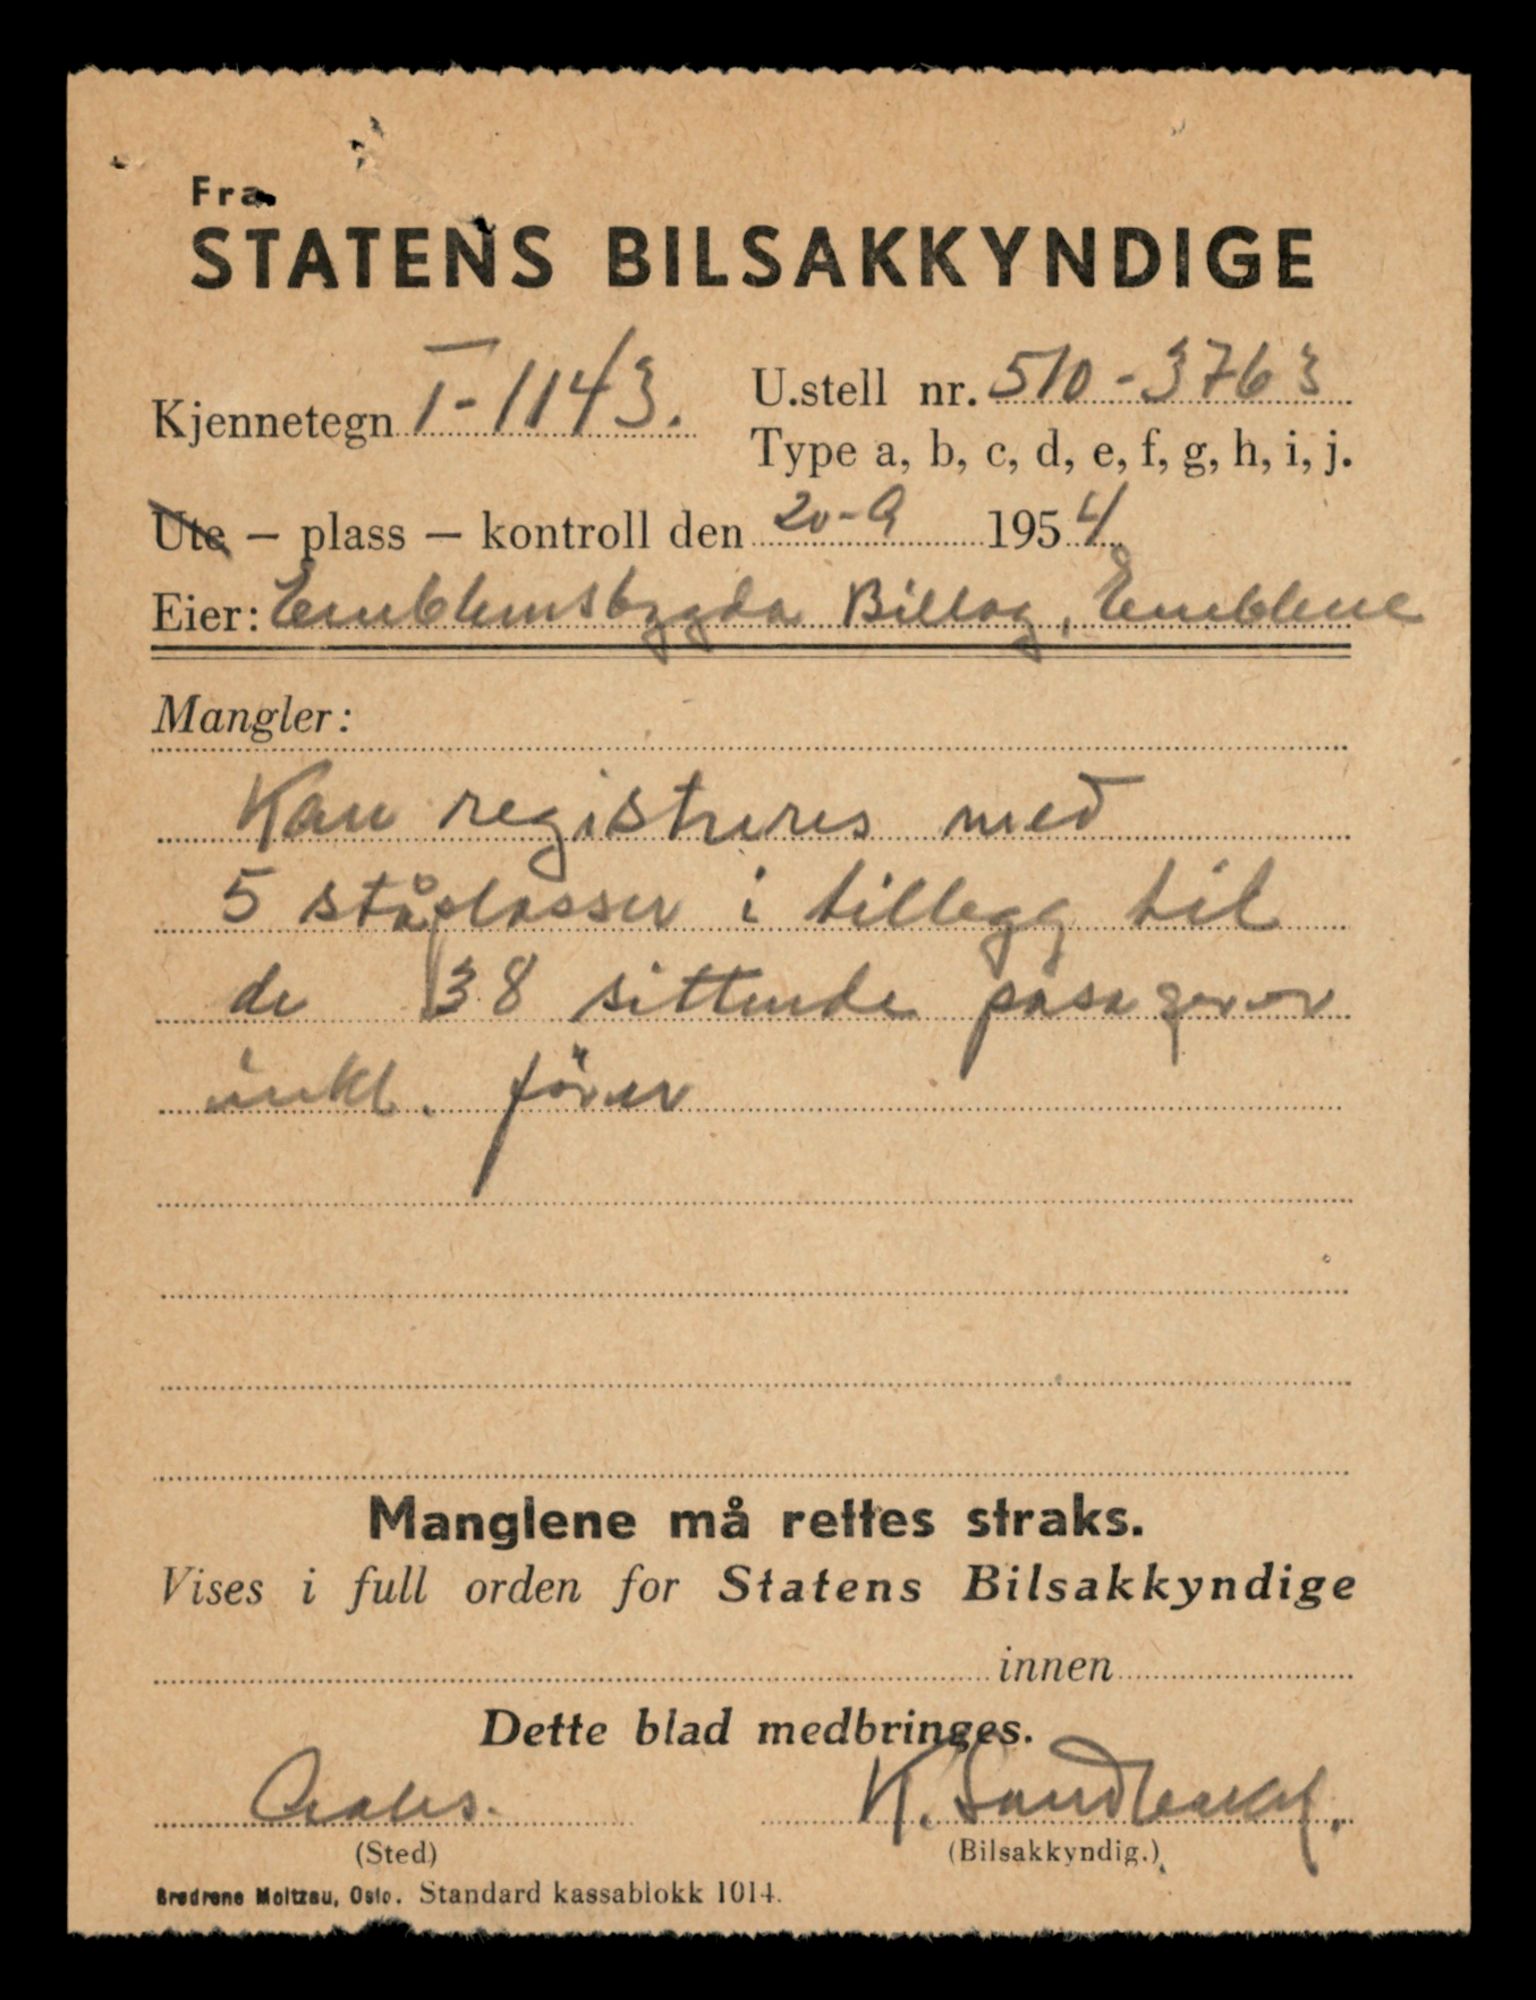 Fra
STATENS BILSAKKYNDIGE
Kjennetegn T-1143.
U.stell nr. 510-3763
Type a, b, c, d, e, f, g, h, i, j.
Ute – plass – kontroll den 20-9 1954
Eier: Emblemsbygda Billag, Embleme
Mangler:
Kan registreres med
5 ståplasser i tillegg til
de 38 sittende pasagerer
inkl. förer
Manglene må rettes straks.
Vises i full orden for Statens Bilsakkyndige
innen
Dette blad medbringes.
Aales. K.
(Sted) (Bilsakkyndig.)
Brødrene Moltzau, Oslo. Standard kassablokk 1014.